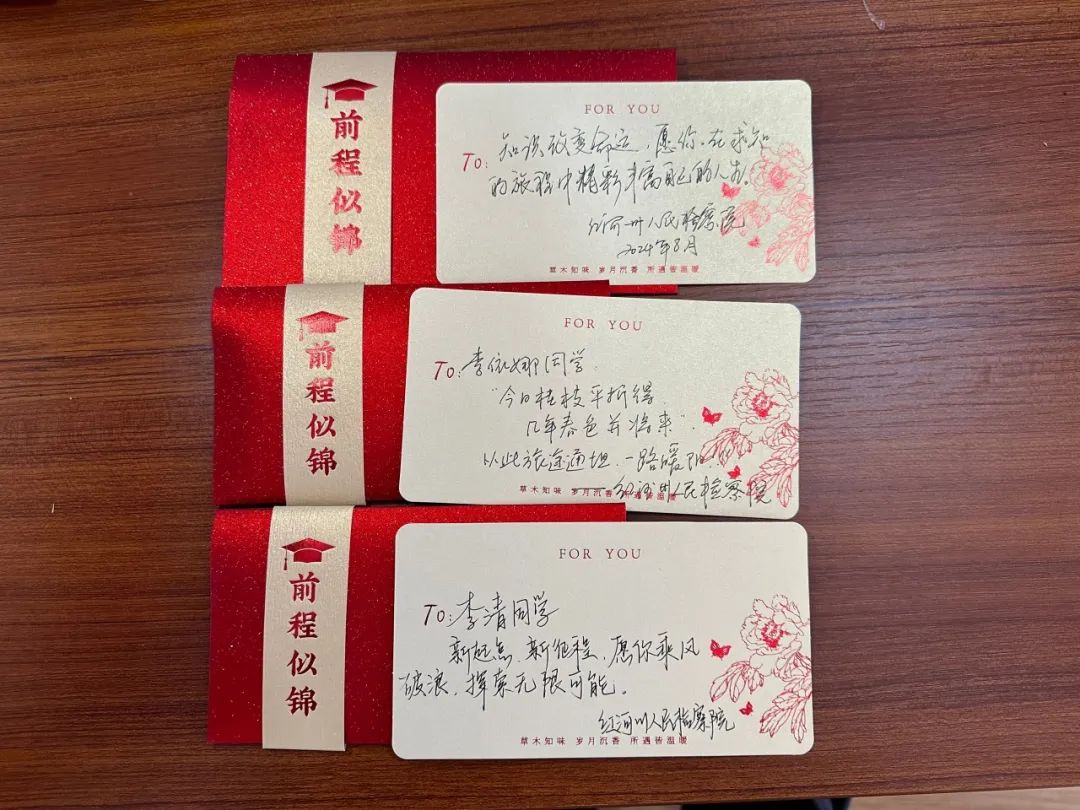 前程似锦
FOR YOU
To: 知识改变命运，愿你在求知
的旅程中精彩丰富自己的人生。
红河州人民检察院
2024年8月
草木知味 岁月沉香 所遇皆温暖
前程似锦
FOR YOU
To: 李依娜同学
“今日桂枝平折得，
几年春色并将来”。
从此旅途通坦，一路暖阳。
——红河州人民检察院
草木知味 岁月沉香 所遇皆温暖
前程似锦
FOR YOU
To: 李清同学
新起点，新征程，愿你乘风
破浪，探索无限可能。
红河州人民检察院
草木知味 岁月沉香 所遇皆温暖